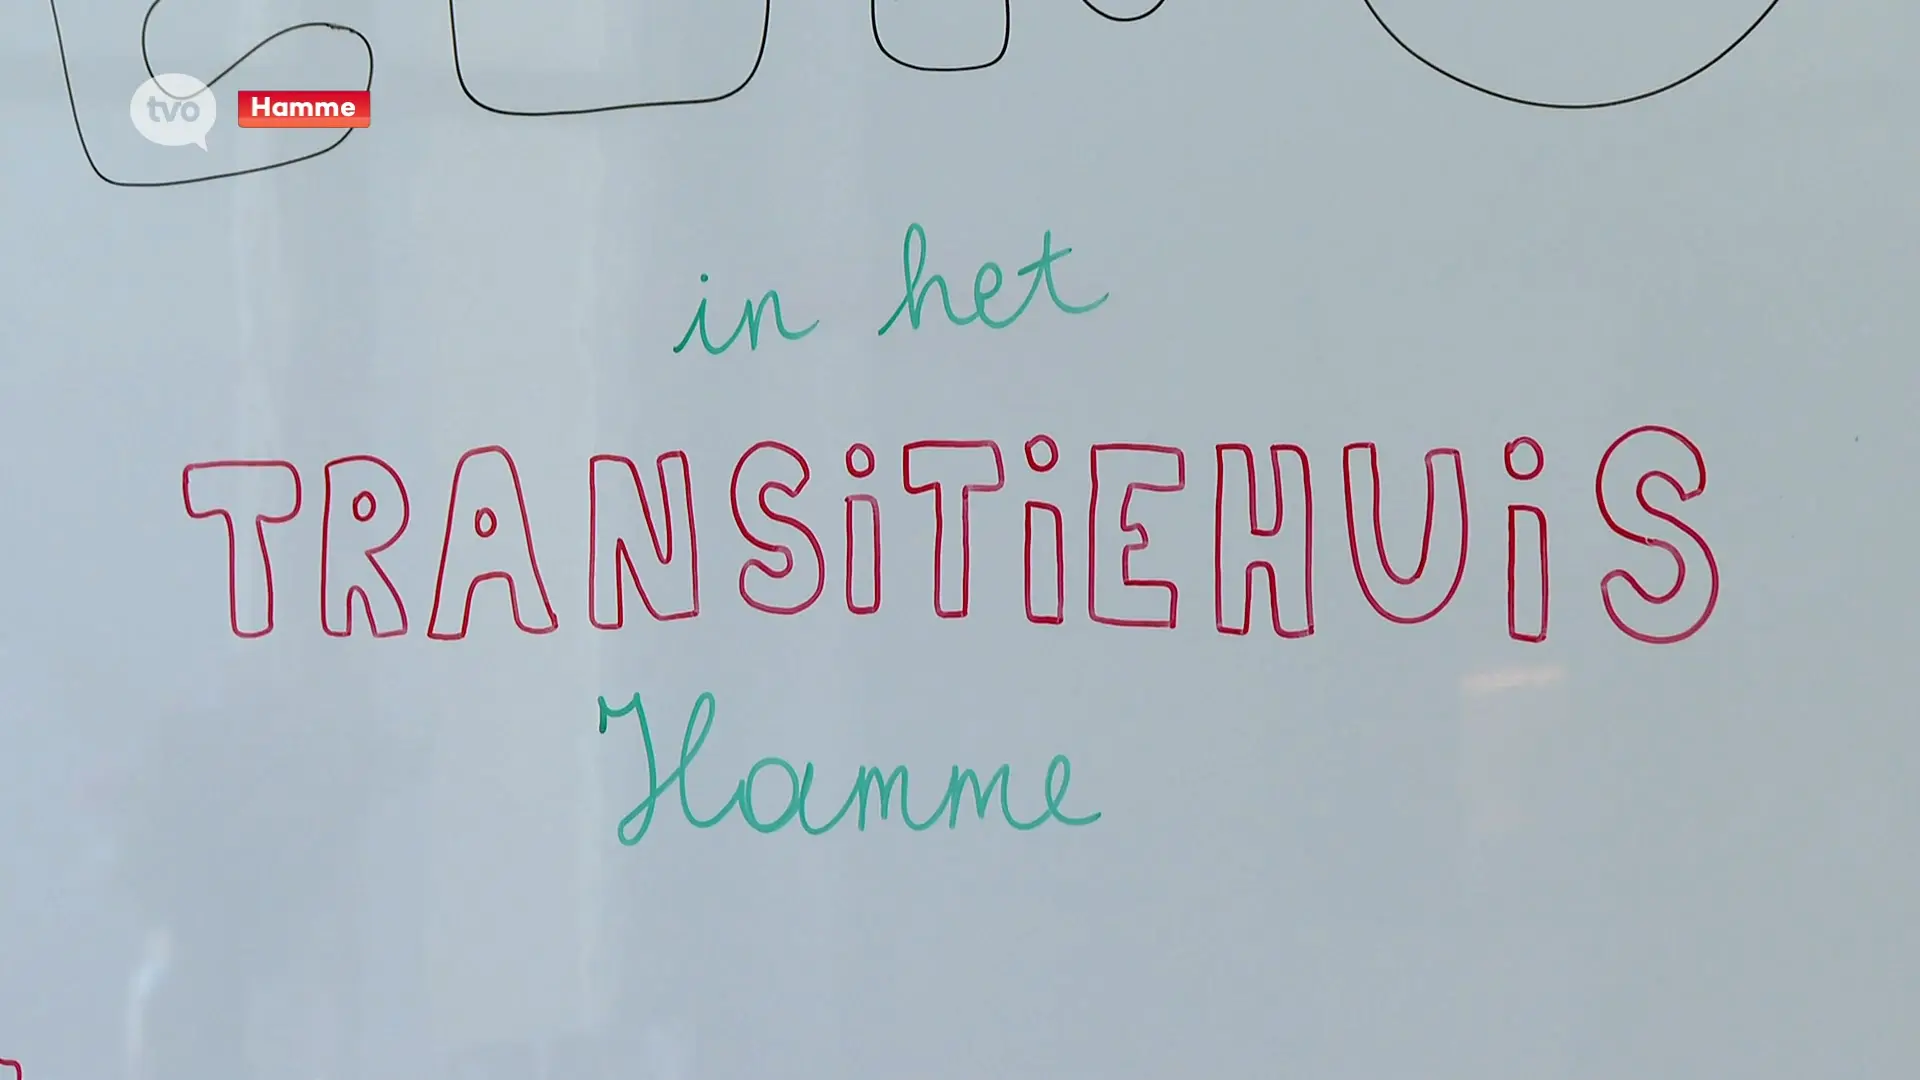 tvo Hamme
in het
TRANSiTiEHUiS
Hamme